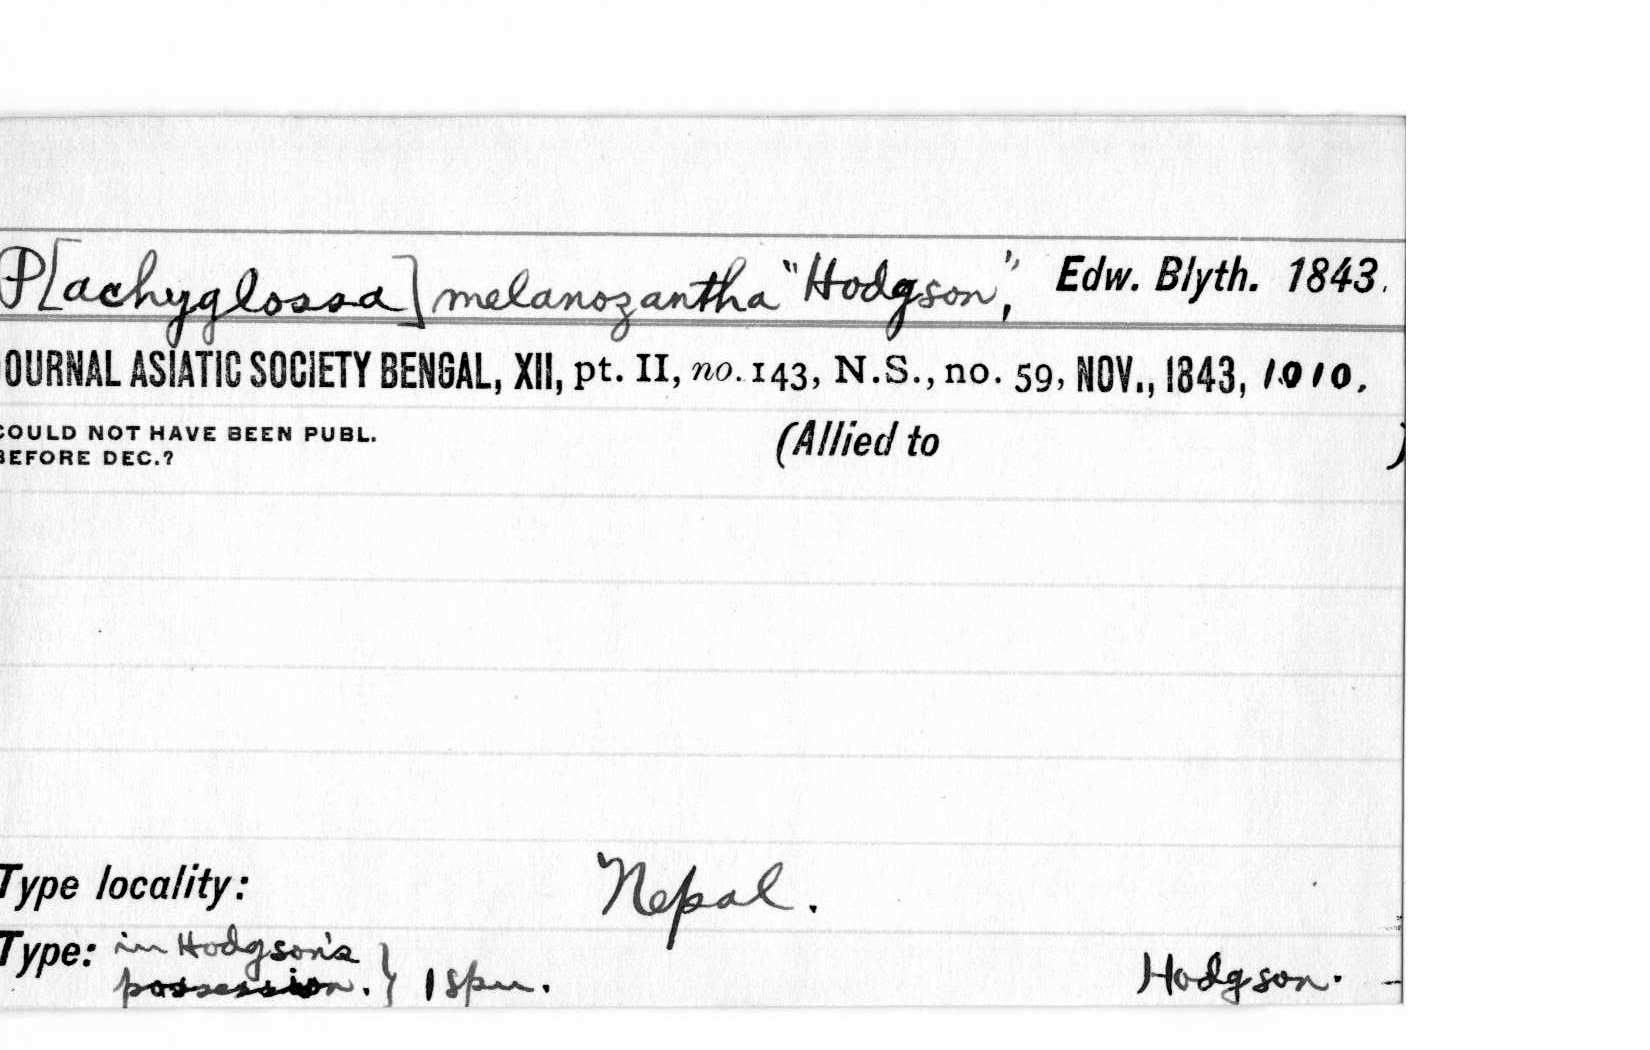 P[achyglossa] melanozantha "Hodgson", Edw. Blyth. 1843.
OURNAL ASIATIC SOCIETY BENGAL, XII, pt. II, no. 143, N.S., no. 59, NOV., 1843, 1010.
COULD NOT HAVE BEEN PUBL.
BEFORE DEC.?
(Allied to )
Type locality: Nepal.
Type: in Hodgson's
possession. } 1 spm. Hodgson.